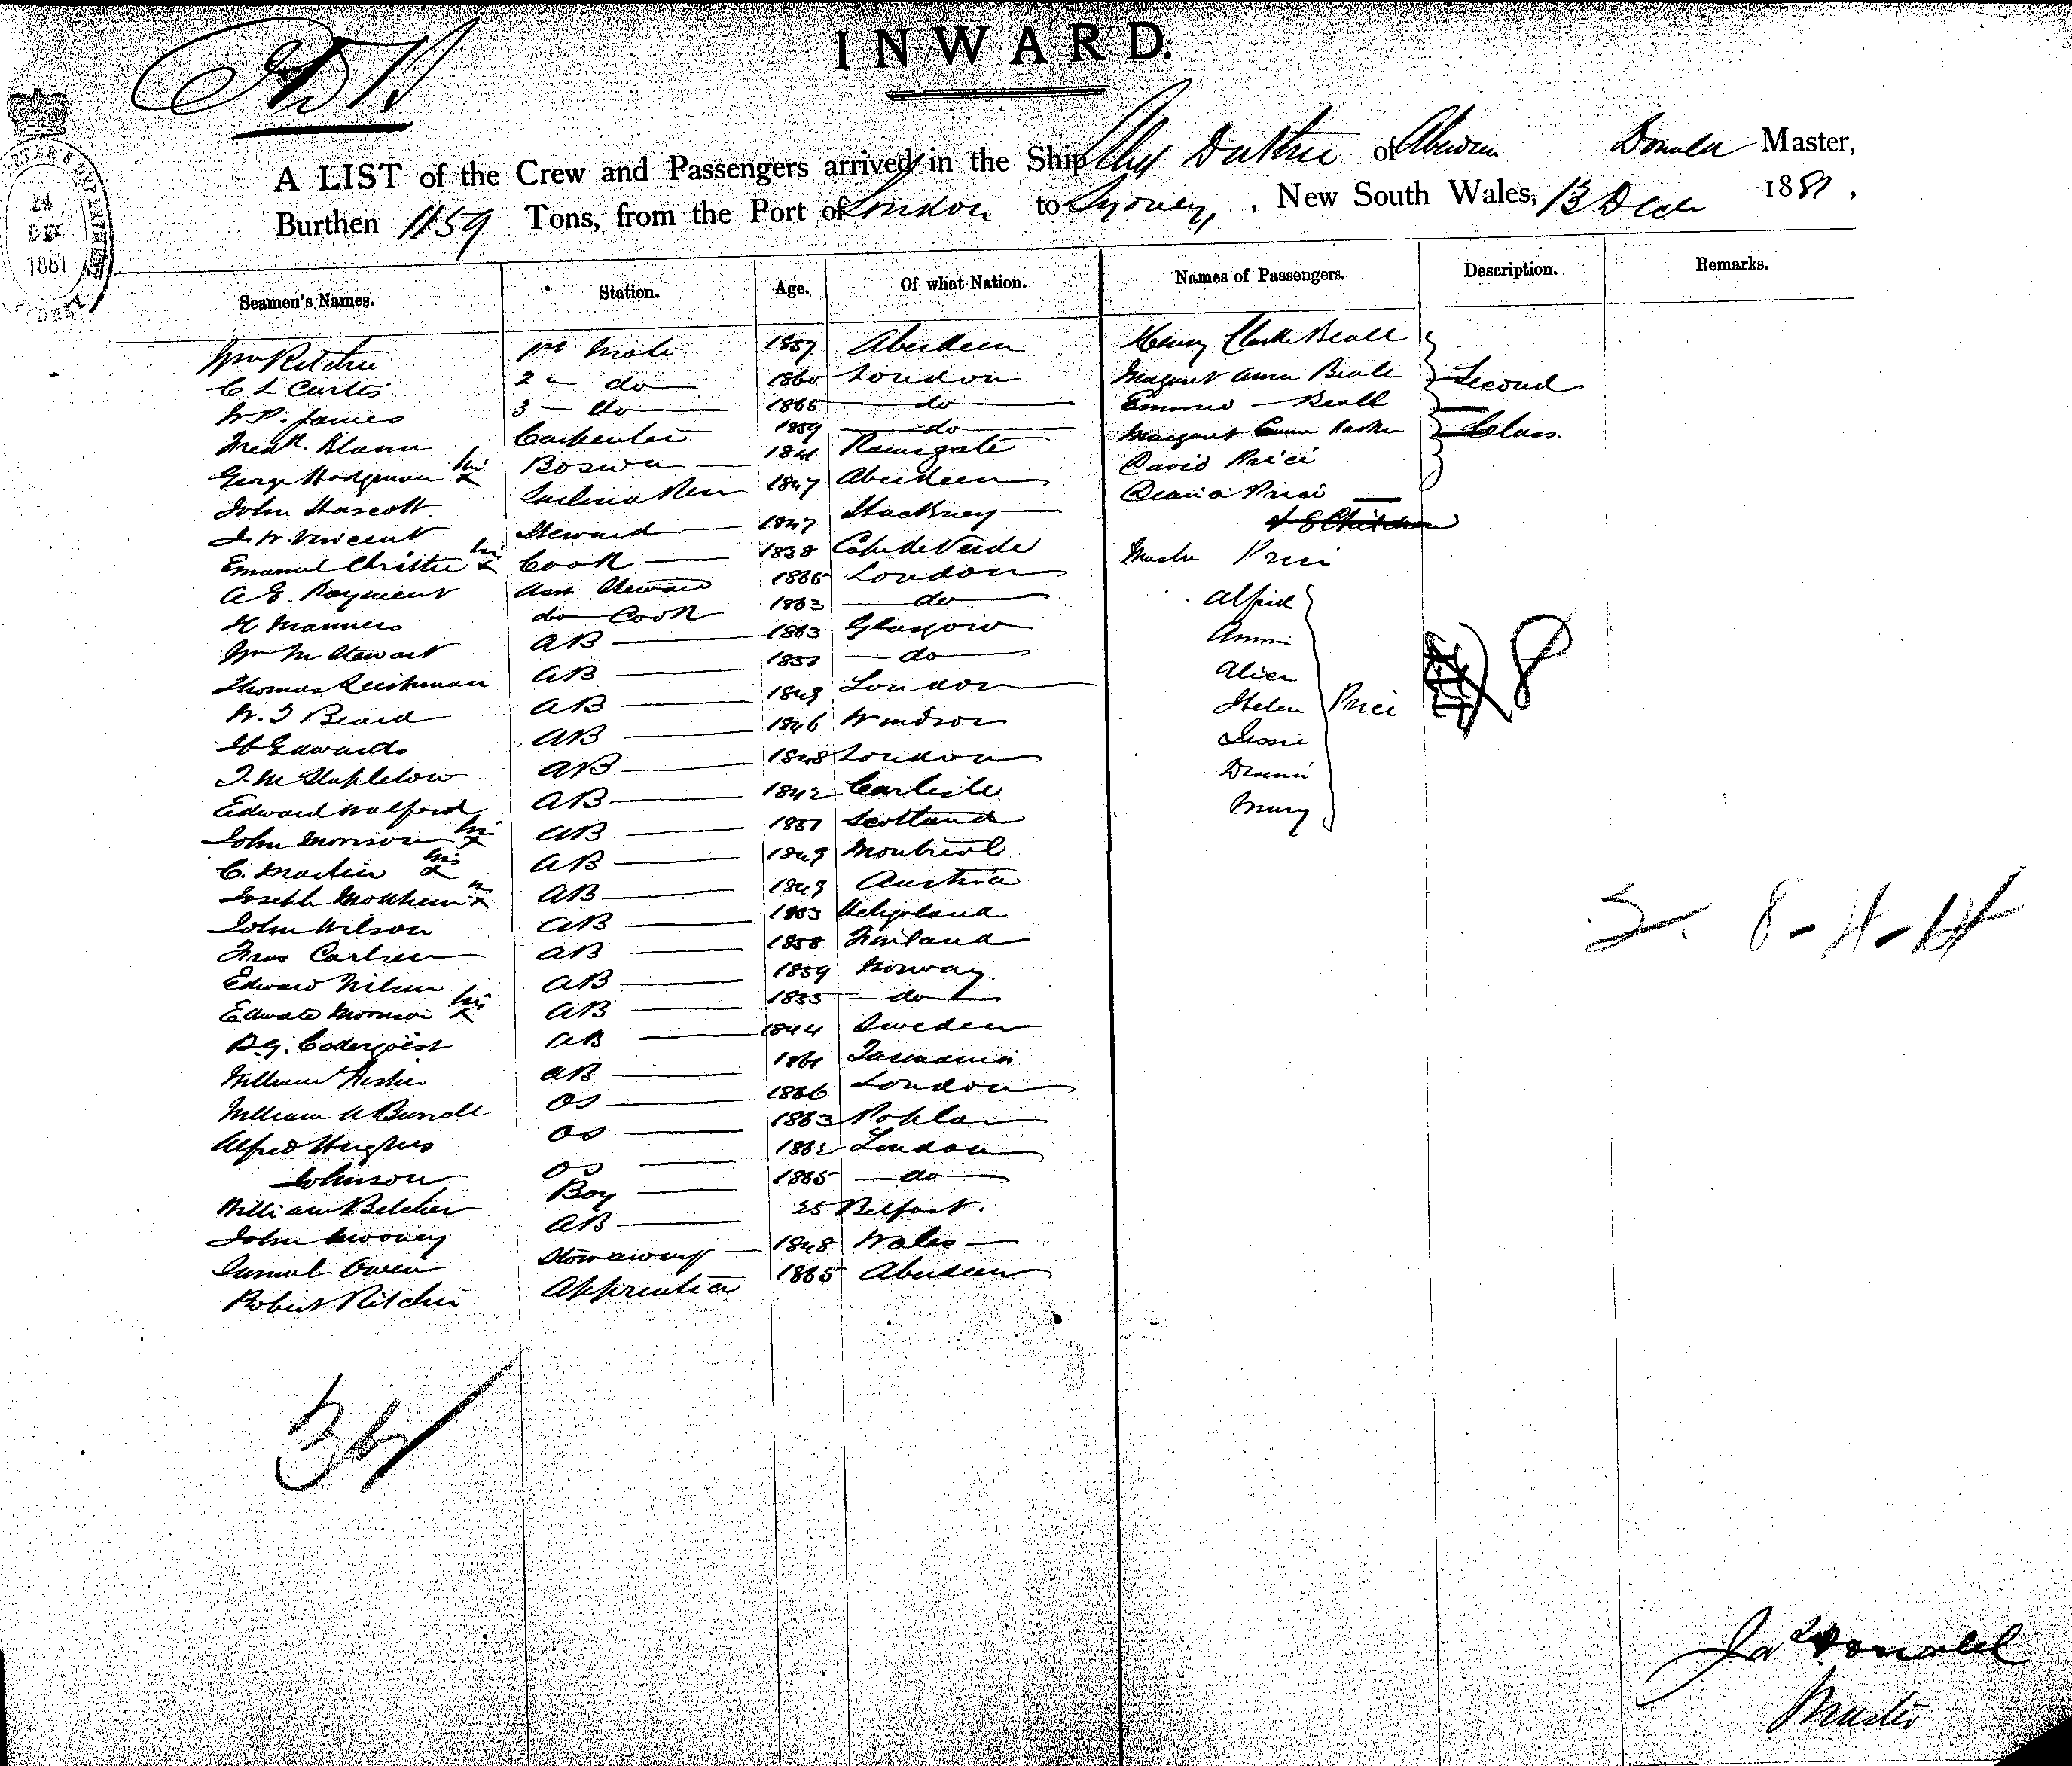 INWARD.
A LIST of the Crew and Passengers arrived in the Ship Alex Duthie of Aberdeen Donald Master,
Burthen 1159 Tons, from the Port of London to Sydney, New South Wales, 13 Decr 1881,
14
DEC
1881
Seamen's Names. Station. Age. Of what Nation. Names of Passengers. Description. Remarks.
Wm Ritchie 1st Mate 1857 Aberdeen Henry Clarke Beall
C L Curtis 2 " do 1860 London Margaret Anna Beall Second
W.P. James 3 - do 1865 do Emma Beall
Fredk. Blann Carpenter 1859 do Margaret Parker Class
George Hodgman his x Boswn 1841 Ramsgate David Price
John Harcott Sailmaker 1847 Aberdeen Price
J. W. Vincent Steward 1847 Hackney & 8 Children
Emanuel Christie his x Cook 1838 Cape de Verde Master Price
A E. Rayment Asst Steward 1865 London Alfred
H Manners do Cook 1863 do Annie
Wm M Stewart AB 1863 Glasgow Alice
Thomas AB do Helen Price 8
W. J Beard AB 1849 London Jessie
H Edwards AB 1846 Windsor
J. M Stapletow AB 1848 London Mary
Edward Walford AB 1842 Carlisle
John Morrison his x AB 1857 Scotland
C. Martin his x AB 1849 Montreal
Joseph x AB 1849 Austria
John Wilson AB 1853 Heligoland
Fras Carlsen AB 1858 Finland
Edward Nilsen AB 1859 Norway.
Edward his x AB 1855 do
AB 1844 Sweden
William AB 1861 Tasmania
William A Burrell OS 1866 London
Alfred Hughes OS 1863 Poplar
Johnson OS 1862 London
William Belcher Boy 1865 do
John Mooney AB 25 Belfast.
Samuel Owen Stowaway 1848 Wales
Robert Ritchie Apprentice 1865 Aberdeen
Donald
Master